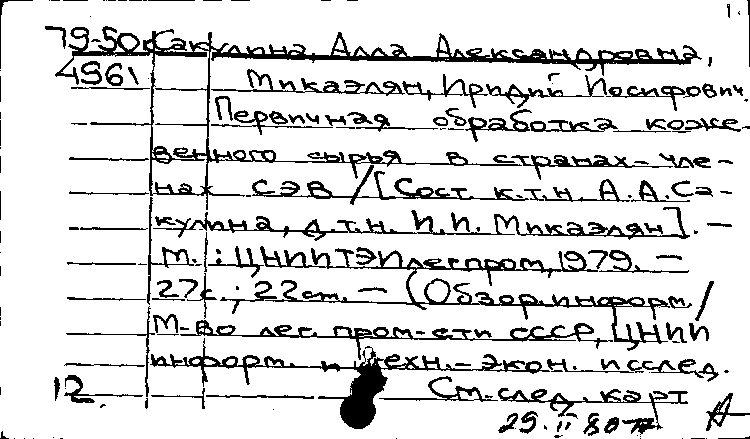 1.
79-50к Сакулина, Алла Александровна,
4961 Микаэлян, Иридий Иосифович.
Первичная обработка коже-
венного сырья в странах-чле-
нах СЭВ / [Сост. к.т.н. А.А.Са-
кулина, д.т.н. И.И. Микаэлян]. —
М. : ЦНИИТЭИлегпром, 1979. —
27с.; 22см. — (Обзор. информ /
М-во лег. пром-сти СССР, ЦНИИ
информ. и техн.-экон. исслед.
12. См. след. карт
29.II 80